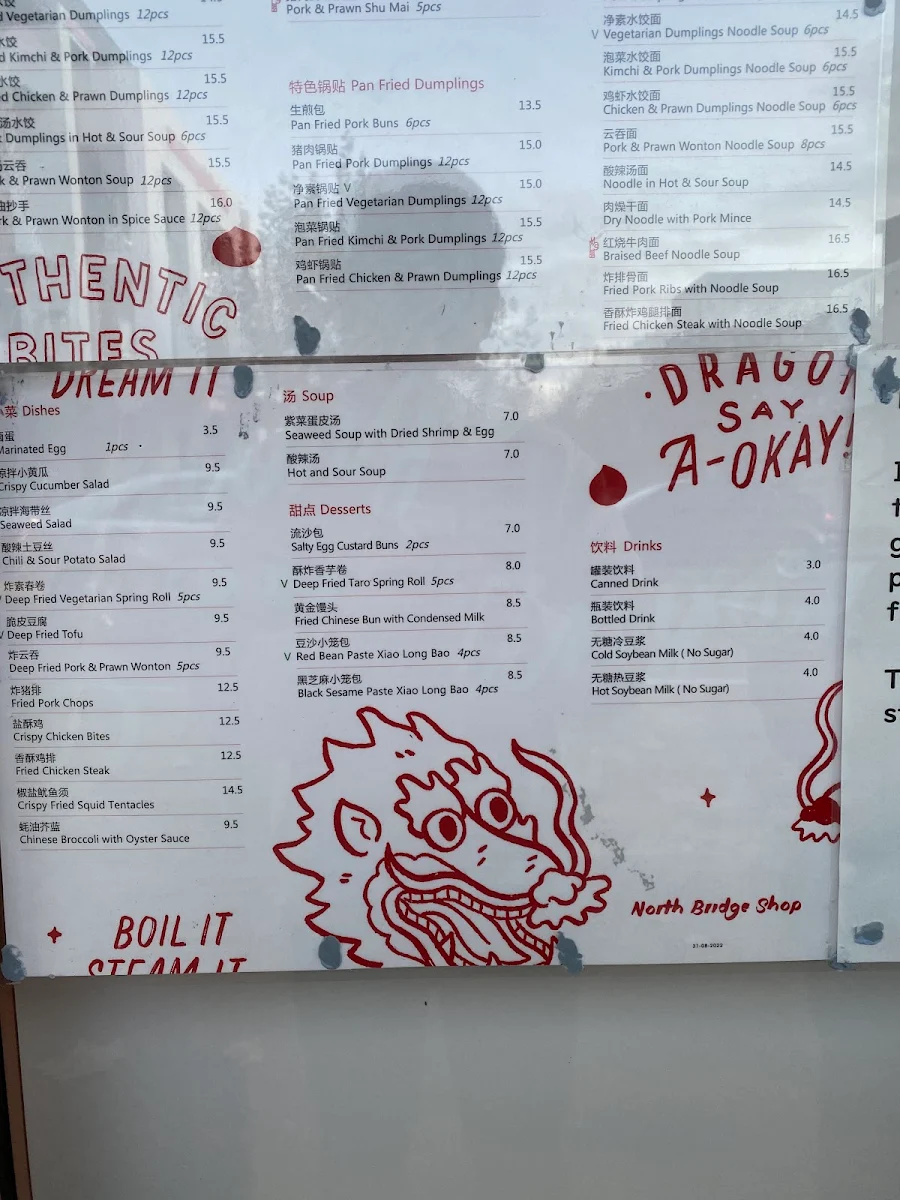 Vegetarian Dumplings 12pcs
水饺 15.5
Kimchi & Pork Dumplings 12pcs
水饺 15.5
Chicken & Prawn Dumplings 12pcs
汤水饺 15.5
Dumplings in Hot & Sour Soup 6pcs
云吞 15.5
& Prawn Wonton Soup 12pcs
抄手 16.0
& Prawn Wonton in Spice Sauce 12pcs
THENTIC
BITES
Pork & Prawn Shu Mai 5pcs
特色锅贴 Pan Fried Dumplings
生煎包 13.5
Pan Fried Pork Buns 6pcs
猪肉锅贴 15.0
Pan Fried Pork Dumplings 12pcs
净素锅贴 V 15.0
Pan Fried Vegetarian Dumplings 12pcs
泡菜锅贴 15.5
Pan Fried Kimchi & Pork Dumplings 12pcs
鸡虾锅贴 15.5
Pan Fried Chicken & Prawn Dumplings 12pcs
净素水饺面 14.5
V Vegetarian Dumplings Noodle Soup 6pcs
泡菜水饺面 15.5
Kimchi & Pork Dumplings Noodle Soup 6pcs
鸡虾水饺面 15.5
Chicken & Prawn Dumplings Noodle Soup 6pcs
云吞面 15.5
Pork & Prawn Wonton Noodle Soup 8pcs
酸辣汤面 14.5
Noodle in Hot & Sour Soup
肉燥干面 14.5
Dry Noodle with Pork Mince
红烧牛肉面 16.5
Braised Beef Noodle Soup
炸排骨面 16.5
Fried Pork Ribs with Noodle Soup
香酥炸鸡腿排面 16.5
Fried Chicken Steak with Noodle Soup
DREAM IT
菜 Dishes
蛋 3.5
Marinated Egg 1pcs
凉拌小黄瓜 9.5
Crispy Cucumber Salad
凉拌海带丝 9.5
Seaweed Salad
酸辣土豆丝 9.5
Chili & Sour Potato Salad
炸素春卷 9.5
V Deep Fried Vegetarian Spring Roll 5pcs
脆皮豆腐 9.5
V Deep Fried Tofu
炸云吞 9.5
Deep Fried Pork & Prawn Wonton 5pcs
炸猪排 12.5
Fried Pork Chops
盐酥鸡 12.5
Crispy Chicken Bites
香酥鸡排 12.5
Fried Chicken Steak
椒盐鱿鱼须 14.5
Crispy Fried Squid Tentacles
蚝油芥蓝 9.5
Chinese Broccoli with Oyster Sauce
BOIL IT
STEAM IT
汤 Soup
紫菜蛋皮汤 7.0
Seaweed Soup with Dried Shrimp & Egg
酸辣汤 7.0
Hot and Sour Soup
甜点 Desserts
流沙包 7.0
Salty Egg Custard Buns 2pcs
酥炸香芋卷 8.0
V Deep Fried Taro Spring Roll 5pcs
黄金馒头 8.5
Fried Chinese Bun with Condensed Milk
豆沙小笼包 8.5
V Red Bean Paste Xiao Long Bao 4pcs
黑芝麻小笼包 8.5
Black Sesame Paste Xiao Long Bao 4pcs
DRAGO
SAY
A-OKAY!
饮料 Drinks
罐装饮料 3.0
Canned Drink
瓶装饮料 4.0
Bottled Drink
无糖冷豆浆 4.0
Cold Soybean Milk ( No Sugar)
无糖热豆浆 4.0
Hot Soybean Milk ( No Sugar)
North Bridge Shop
31-08-2022